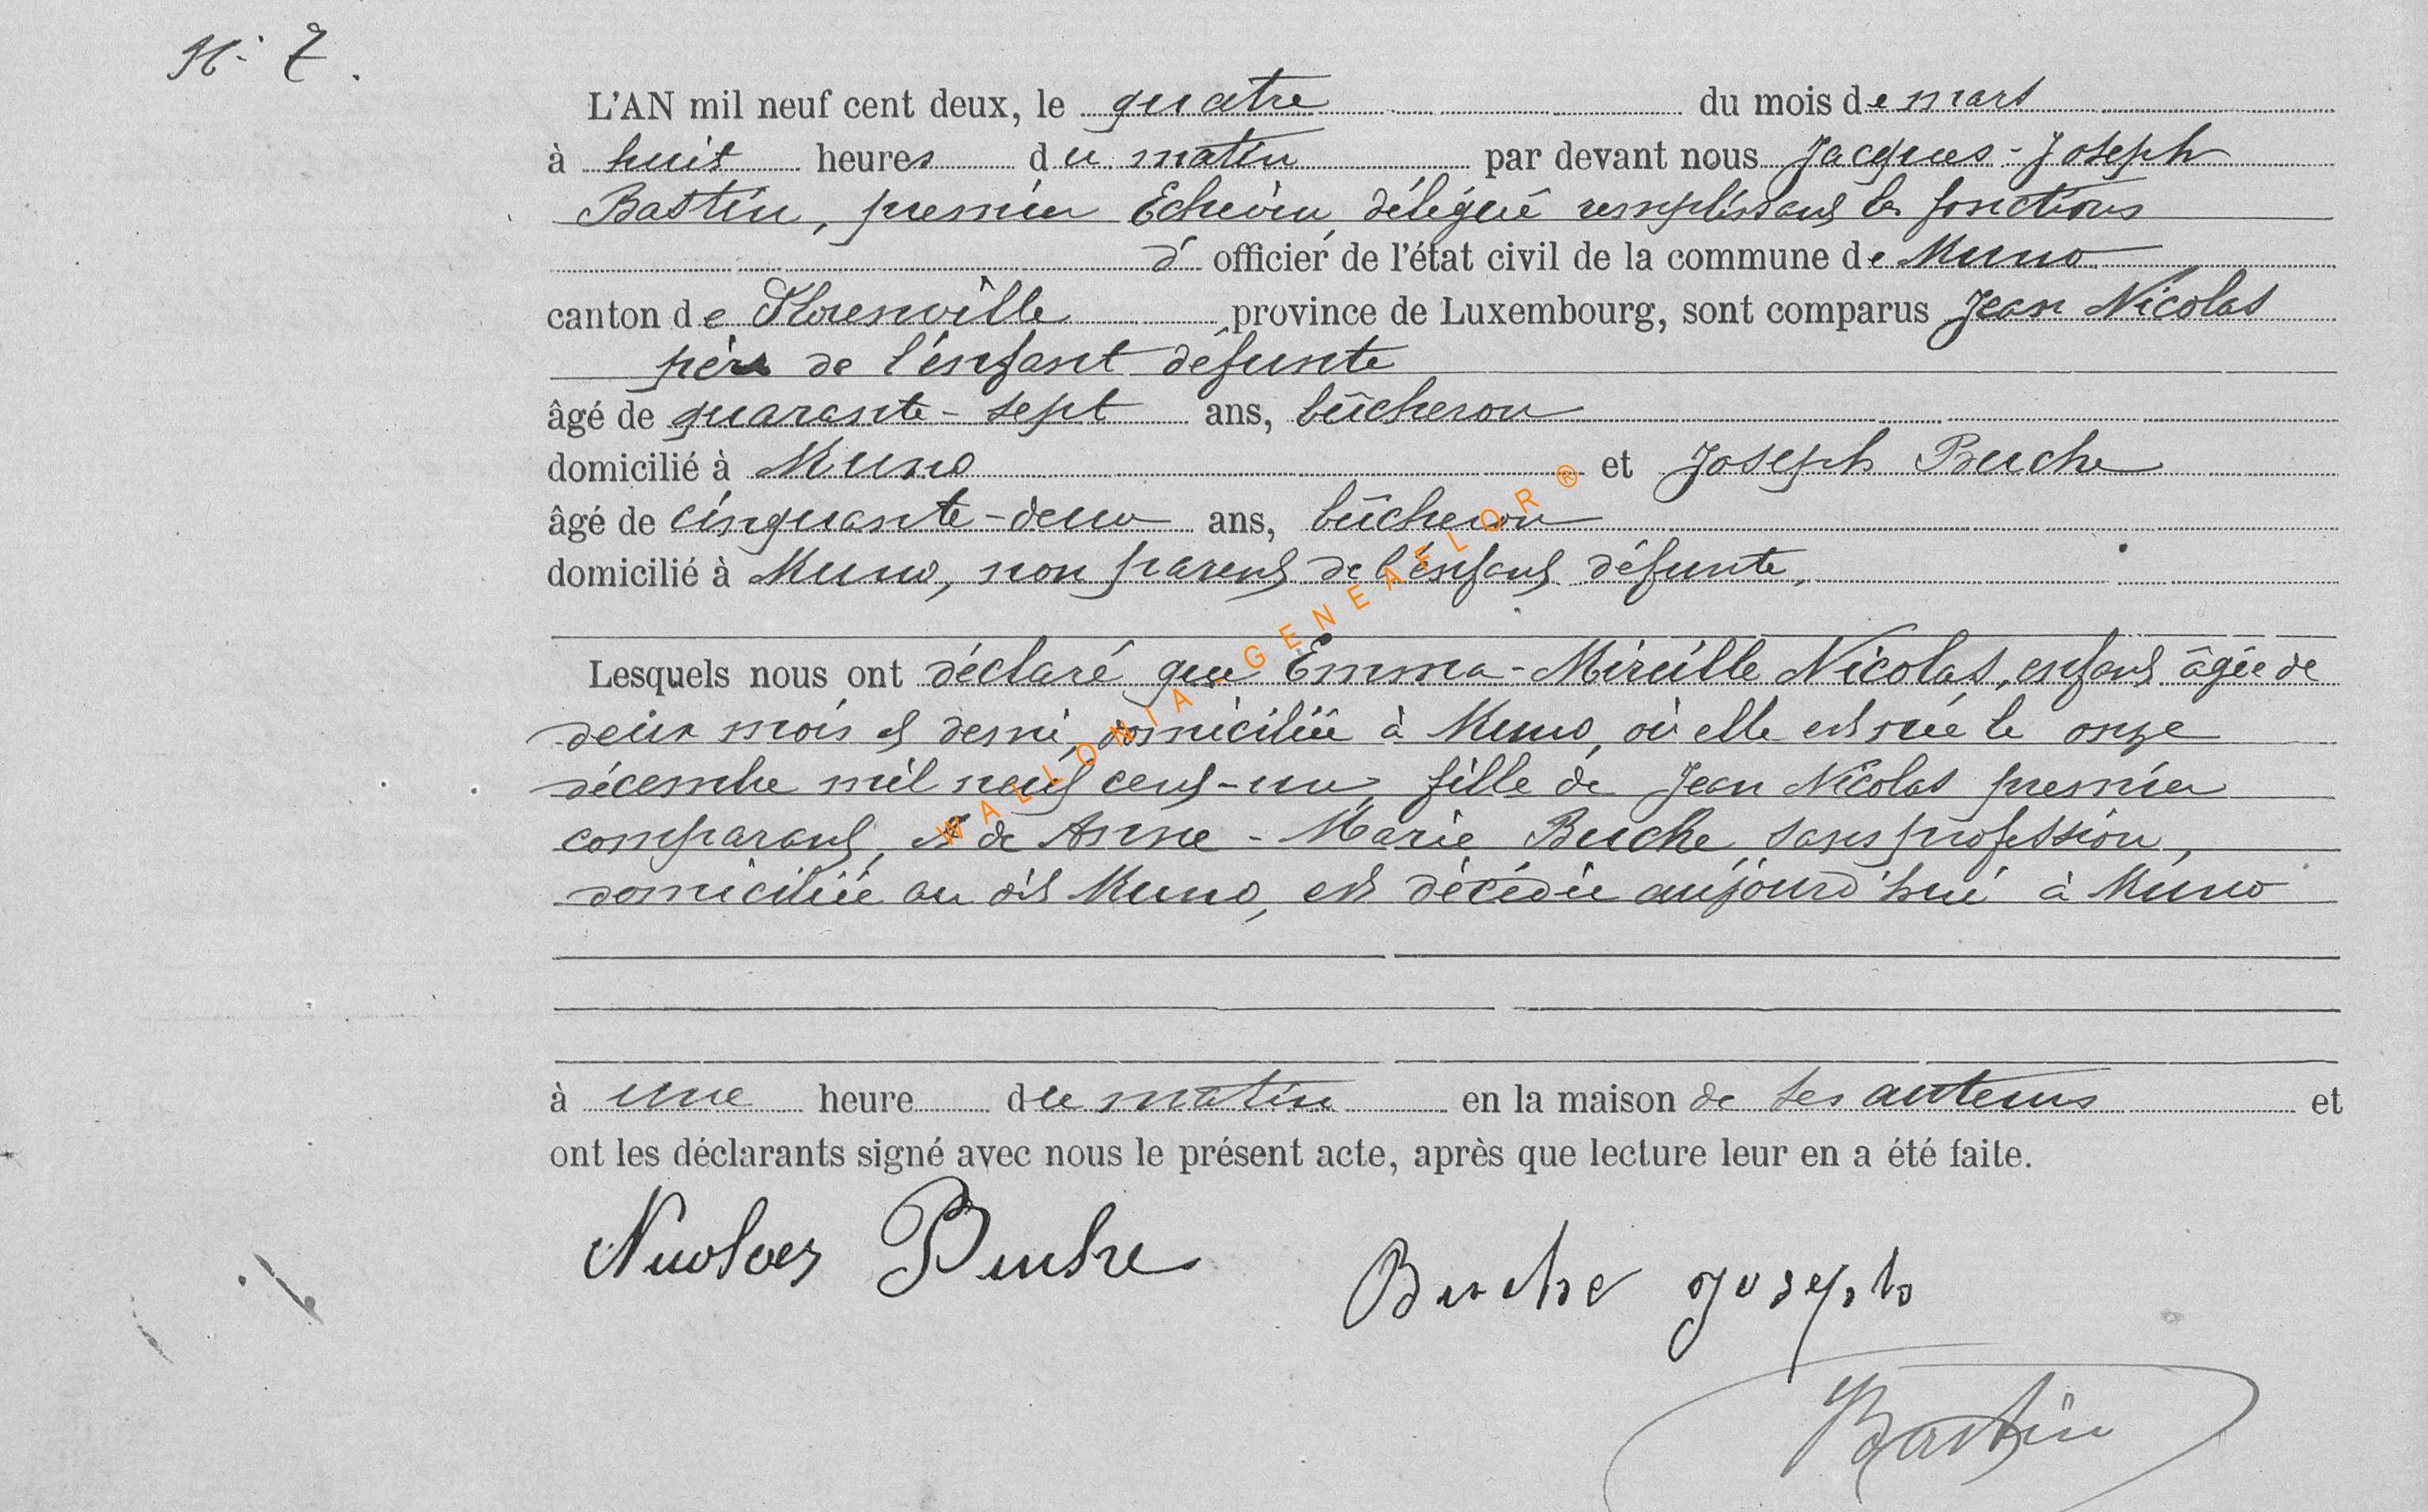 N: 7.
L'AN mil neuf cent deux, le quatre du mois de mars
à huit heures du matin par devant nous Jacques-Joseph
Bastin, premier Echevin, délégué remplissant les fonctions
d' officier de l'état civil de la commune de Muno
canton de Florenville province de Luxembourg, sont comparus Jean Nicolas
père de l'enfant défunte
âgé de quarante-sept ans, bûcheron
domicilié à Muno et Joseph Buche
âgé de cinquante-deux ans, bûcheron
domicilié à Muno, non parent de l'enfant défunte,
Lesquels nous ont déclaré que Emma-Mireille Nicolas, enfant âgée de
deux mois et demi, domiciliée à Muno, où elle est née le onze
décembre mil neuf cent-un, fille de Jean Nicolas premier
comparant, et de Anne-Marie Buche, sans profession,
domiciliée au dit Muno, est décédée aujourd'hui à Muno
à une heure du matin en la maison de ses auteurs et
ont les déclarants signé avec nous le présent acte, après que lecture leur en a été faite.
Nicolas Buche Buche Joseph
Bastin
WALLONIA-GENEAFLOR®